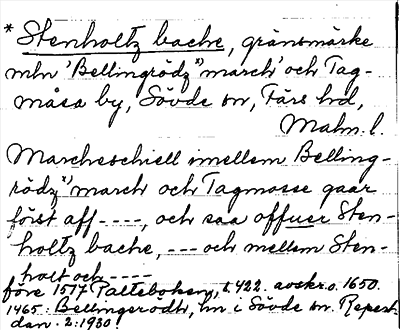 * Stenholtz bache, gränsmärke
mln 'Bellingrödz"march' och Tag-
måsa by, Sövde sn, Färs hd,
Malm. l.
Marcheschiell imellem Belling-
rödz"march och Tagmosse gaar
först aff ----, och saa offuer Sten-
holtz bache, --- och mellem Sten-
holt och ----
före 1577 Palteboken, s. 422. avskr. o. 1650.
1465: Bellingerødh, hn i Sövde sn. Repert.
dan. 2:1930